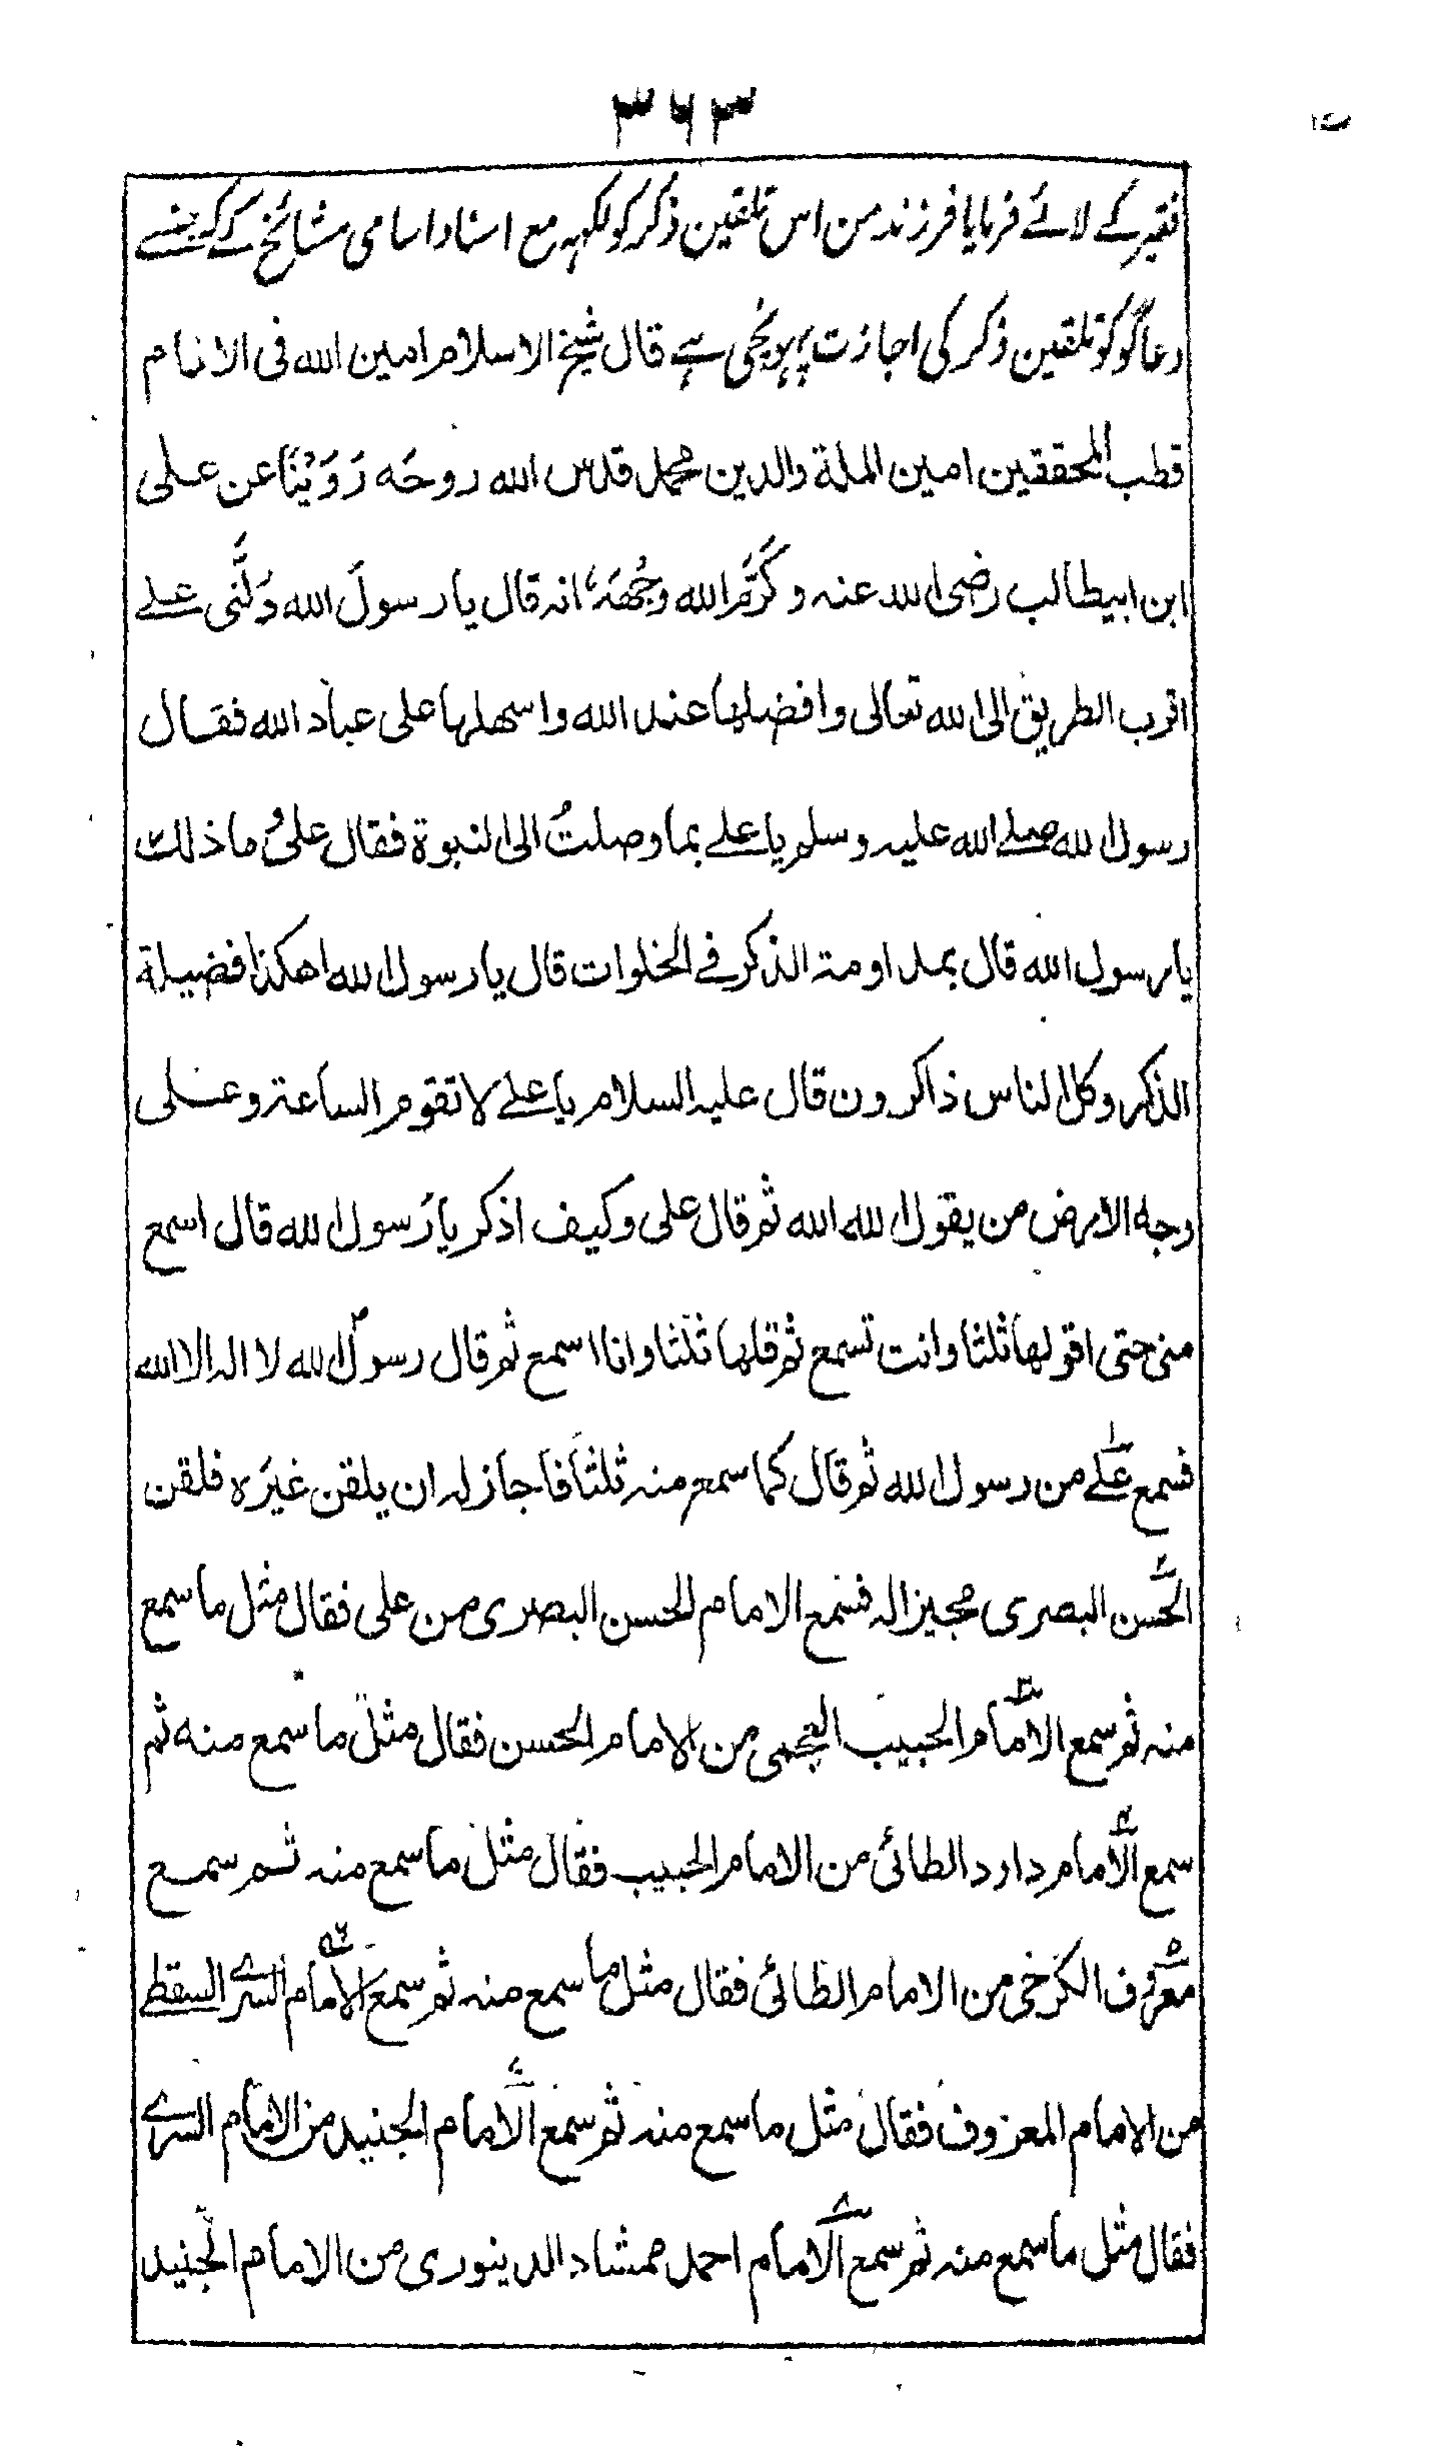 ۳۶۳
فقیر کے لائے فرمایا فرزند من اس تلقین ذکر کو لکہہ مع اسناد اسامی مشائخ کے کہ جنسے
دعاگو کو تلقین ذکر کی اجازت پہونچی ہے قال شیخ الاسلام امین الله فی الانام
قطب المحققین امین الملة والدین محمد قدس الله روحَه رَوَیْنَا عن علی
ابن ابیطالب رضی الله عنه و کَرَّمَ الله وجْهَهَ انه قال یا رسولَ الله دَلَّنی علے
اقرب الطریق الی الله تعالی وافضلها عند الله واسهلها علی عباد الله فقال
رسول الله صلے الله علیه وسلم یا علے بما وصلتُ الی النبوة فقال علیٌ ما ذلك
یا رسول الله قال بمداومة الذکر فے الخلوات قال یا رسول الله اهکذا فضیلة
الذکر وکل الناس ذاکرون قال علیه السلام یا علے لا تقوم الساعة وعلی
وجه الارض من یقول الله الله ثم قال علی وکیف اذکر یا رسول الله قال اسمع
منی حتی اقولها ثلثا وانت تسمع ثم قلها ثلثا وانا اسمع ثم قال رسول الله لا اله الا الله
فسمع علے من رسول الله ثم قال کما سمع منه ثلثا فاجاز له ان یلقن غیرَه فلقن
الحسن البصری مجیزا له فسمع الامام الحسن البصری من علی فقال مثل ما سمع
منه ثم سمع الامام الحبیب العجمی من الامام الحسن فقال مثل ما سمع منه ثم
سمع الامام داود الطائی من الامام الحبیب فقال مثل ما سمع منه ثم سمع
معروف الکرخی من الامام الطائی فقال مثل ما سمع منه ثم سمع الامام السرے السقطے
من الامام المعروف فقال مثل ما سمع منه ثم سمع الامام الجنید من الامام السرے
فقال مثل ما سمع منه ثم سمع الامام احمد ممشاد الدینوری من الامام الجنید